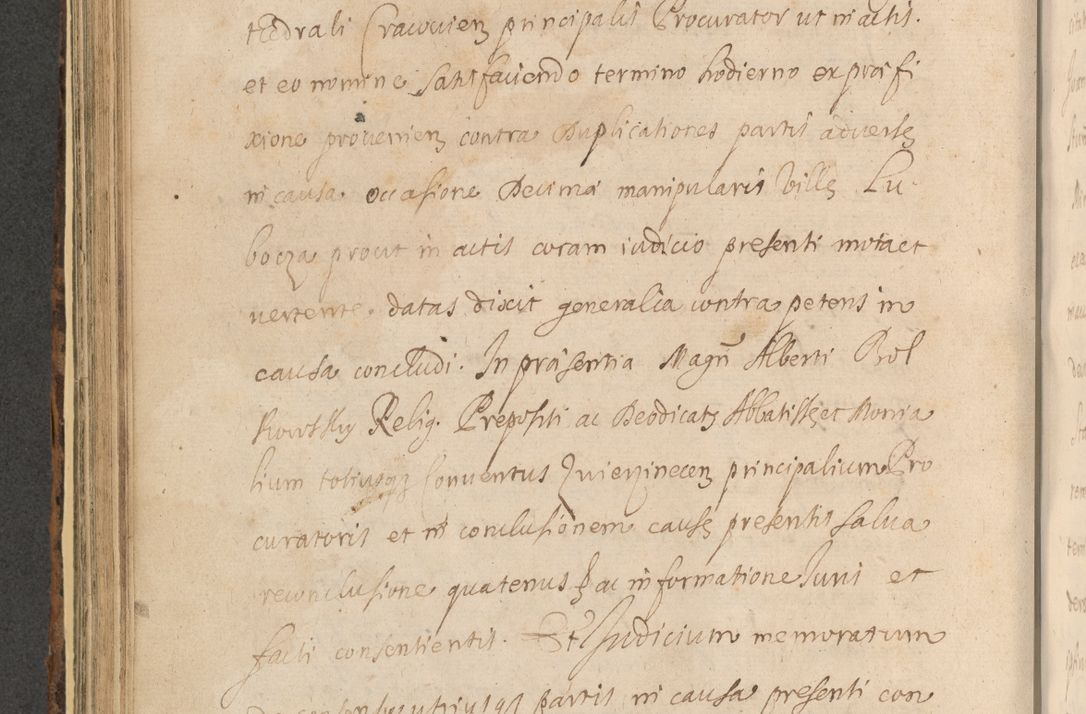 tedrali Cracovien principalis Procurator ut in actis.
et eo nomine satisfaciendo termino hodierno ex præfi
xione provenien contra Duplicationes partis adversę
in causa occasione Decimæ manipularis Villę Lu-
bocza prout in actis coram iudicio presenti mota et
vertente. datas dixit generalia contra petens in
causa concludi. In præsentia Magci Alberti Rol
kowsky Relig. Prepositi ac Deodicatę Abbatissę et Monia
lium totiusqz Conventus Zvierzinecen principalium Pro
curatoris et in conclusionem causę presentis salva
reconclusione quatenus ac informatione Iuris et
facti consentientis. Et Judicium memoratum
De consensu utriusqz partis in causa presenti con